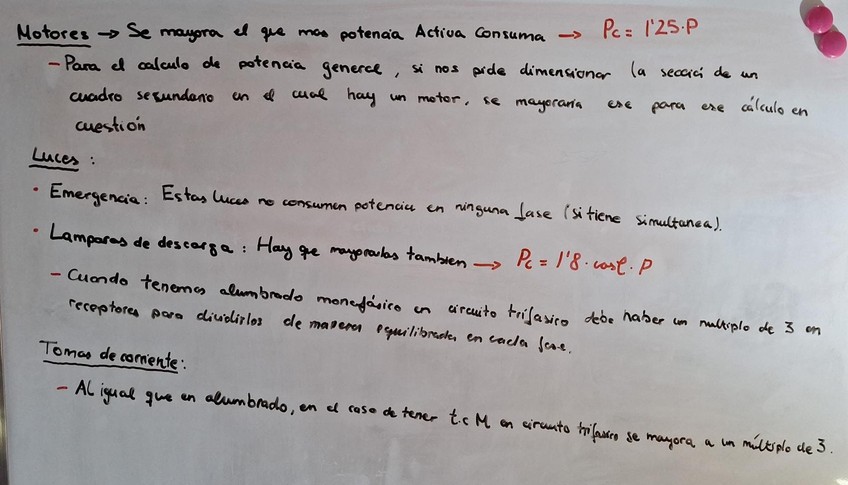 Motores → Se mayora el que mas potencia Activa Consuma → Pc = 1'25·P
- Para el calculo de potencia general, si nos pide dimensionar la secció de un
cuadro secundario en el cual hay un motor, se mayoraria ese para ese cálculo en
cuestión
Luces:
• Emergencia: Estas luces no consumen potencia en ninguna fase (si tiene simultanea).
• Lamparas de descarga: Hay que mayorarlas tambien → Pc = 1'8·cosφ·P
- Cuando tenemos alumbrado monofásico en circuito trifasico debe haber un multiplo de 3 en
receptores para dividirlos de manera equilibrada en cada fase.
Tomas de corriente:
- Al igual que en alumbrado, en el caso de tener t.c M en circuito trifasico se mayora a un múltiplo de 3.